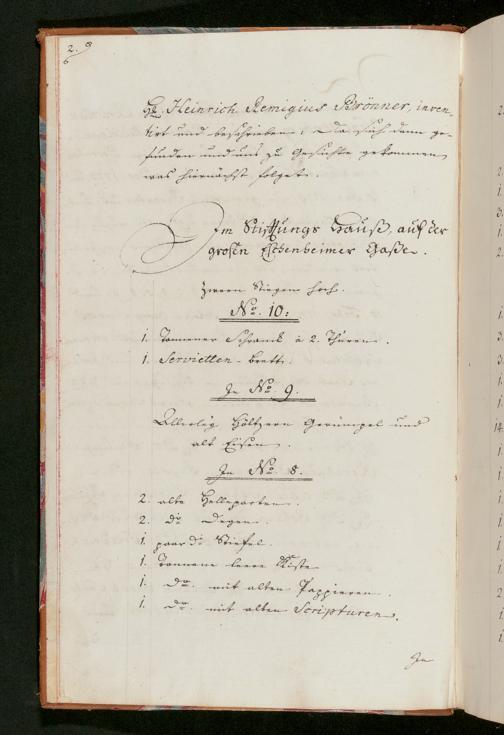 Hr. Heinrich Remigius Brönner, inven-
tirt und beschrieben; Da sich denn ge-
funden und uns zu Gesichte gekommen,
was hiernächst folget.
Im Stifftungs Hauß, auf der
großen Eschenheimer Gaße.
Zween Stiegen hoch.
No. 10:
1. Tannener Schranck à 2. Thüren.
1. Servietten-brett.
In No. 9.
Allerley höltzern Gerümpel und
alt Eisen.
In No. 8.
2. alte Helleparten.
2. do Degen.
1. paar do Stiefel.
1. Tannene leere Kiste
1. do. mit alten Pappieren.
1. do. mit alten Scripturen.
In